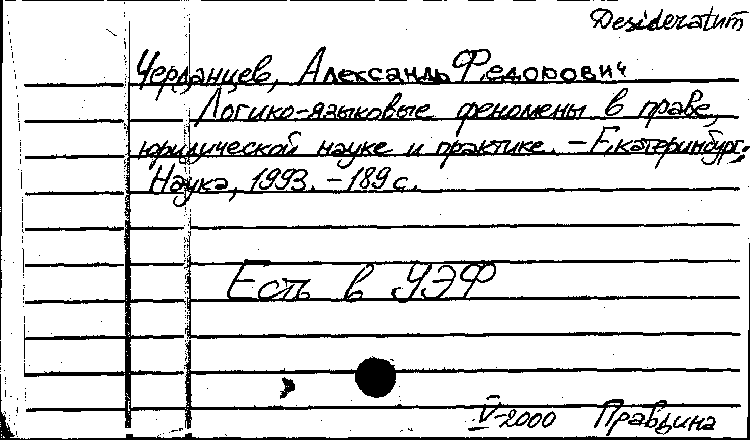 Desideratum
Черданцев, Александр Федорович
Логико-языковые феномены в праве,
юридической науке и практике. – Екатеринбург:
Наука, 1993. – 189 с.
Есть в УЭФ
V-2000 Правдина